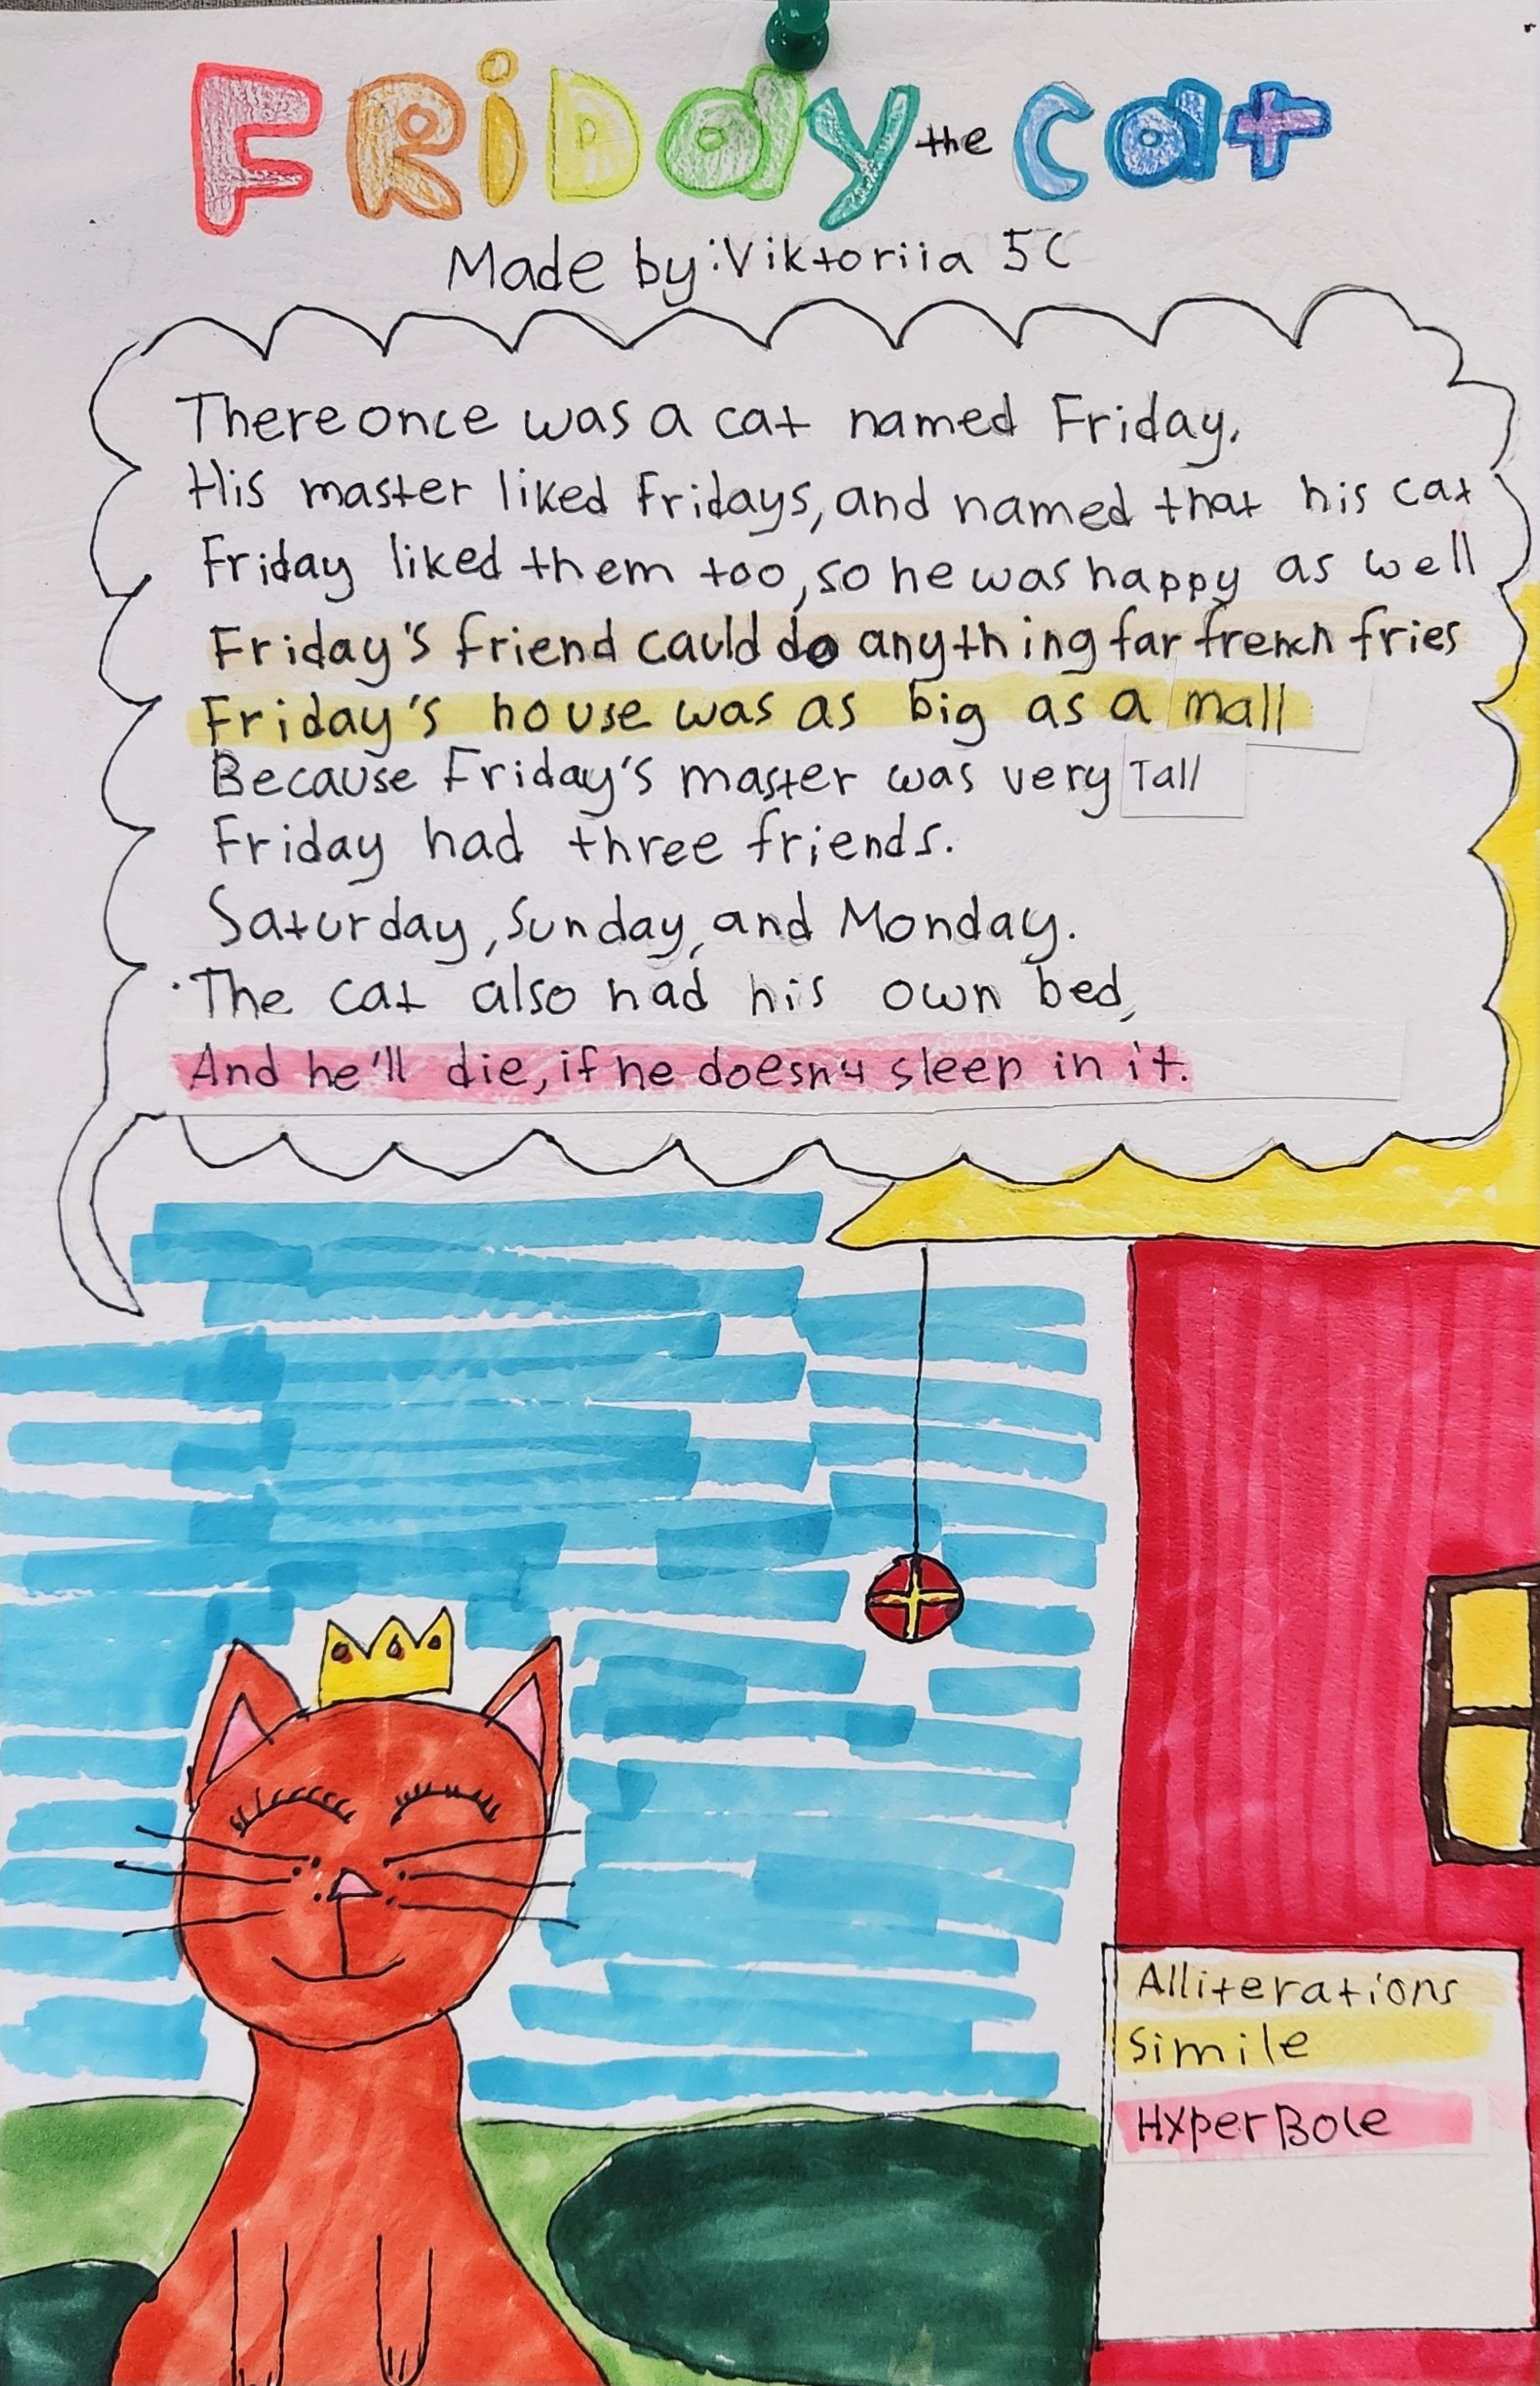 FRiDay the cat
Made by: Viktoriia 5C
There once was a cat named Friday.
His master liked Fridays, and named that his cat
Friday liked them too, so he was happy as well
Friday's friend cauld do anything far french fries
Friday's house was as big as a mall
Because Friday's master was very Tall
Friday had three friends.
Saturday, Sunday, and Monday.
The cat also had his own bed,
And he'll die, if he doesn't sleep in it.
Alliterations
Simile
HyperBole